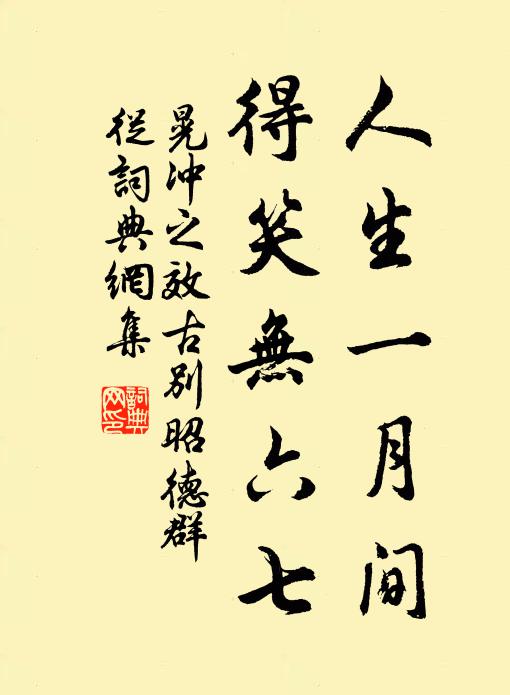 人生一月间
得笑無六七
晁沖之效古别昭德群
從詞典網集
詞典網印